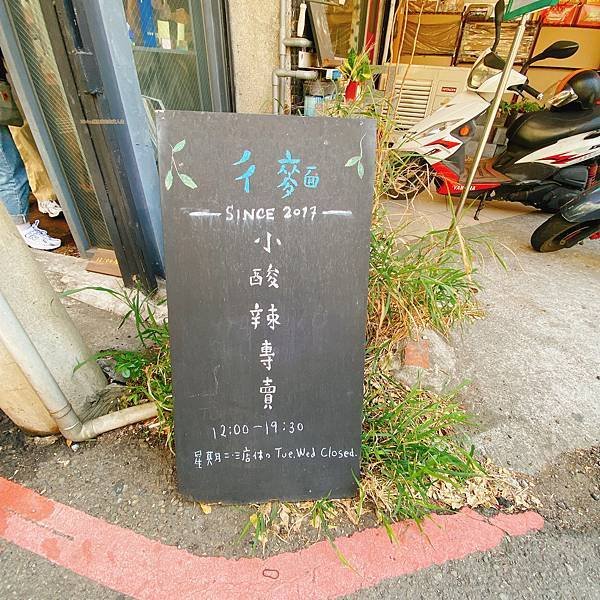 彳麵
SINCE 2017
小酸辣專賣
12:00-19:30
星期二、三店休。Tue,Wed Closed.
YAMAHA